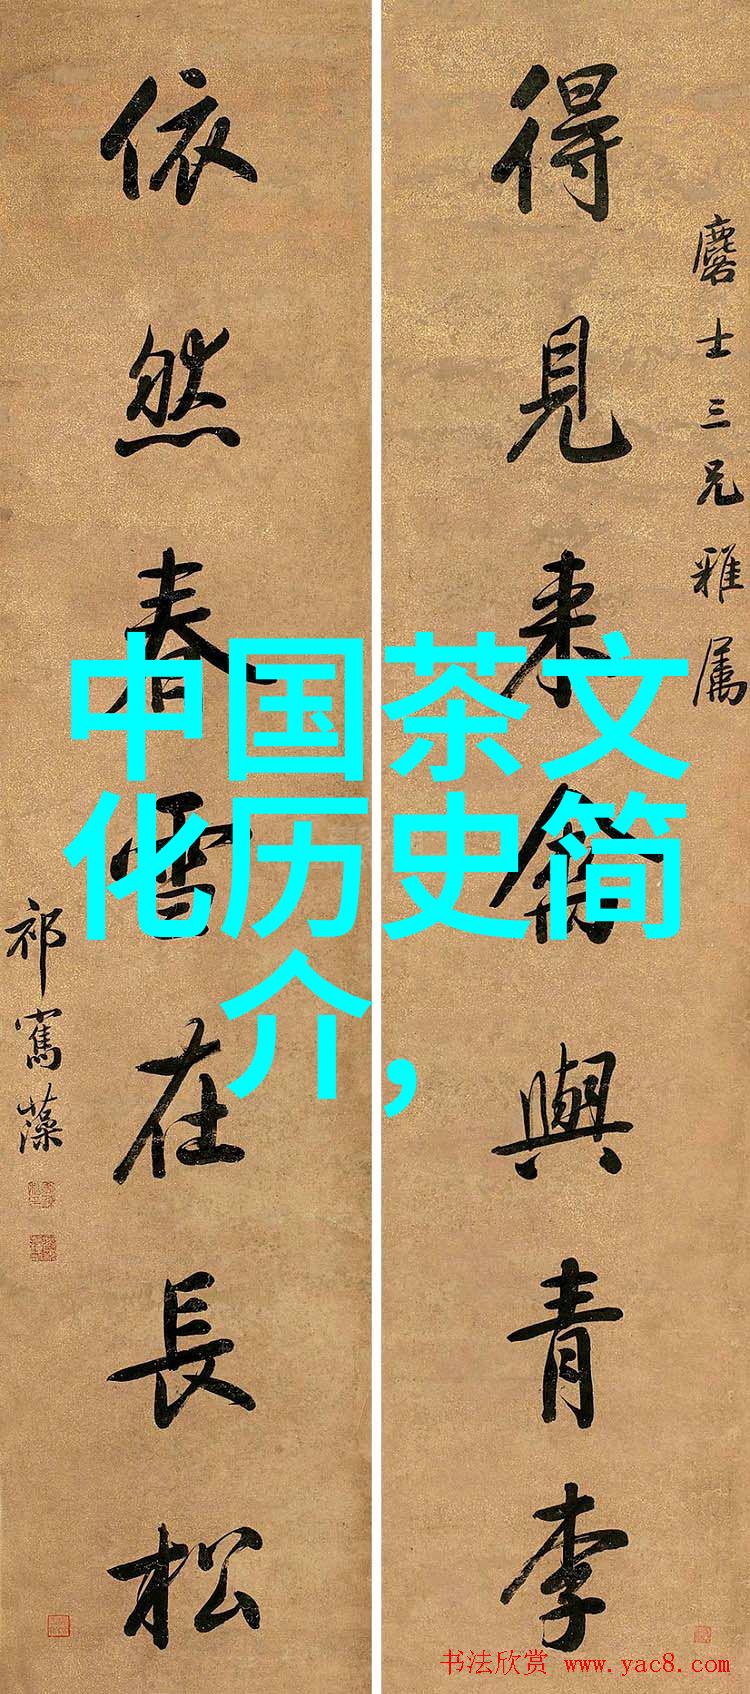 得見来禽與青李
麐士三兄雅屬
依然春雪在長松
祁寯藻
中国茶文
化历史简
介，
书法欣赏 www.yac8.com